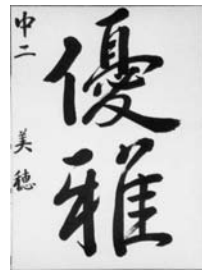 優雅
中二 美穂